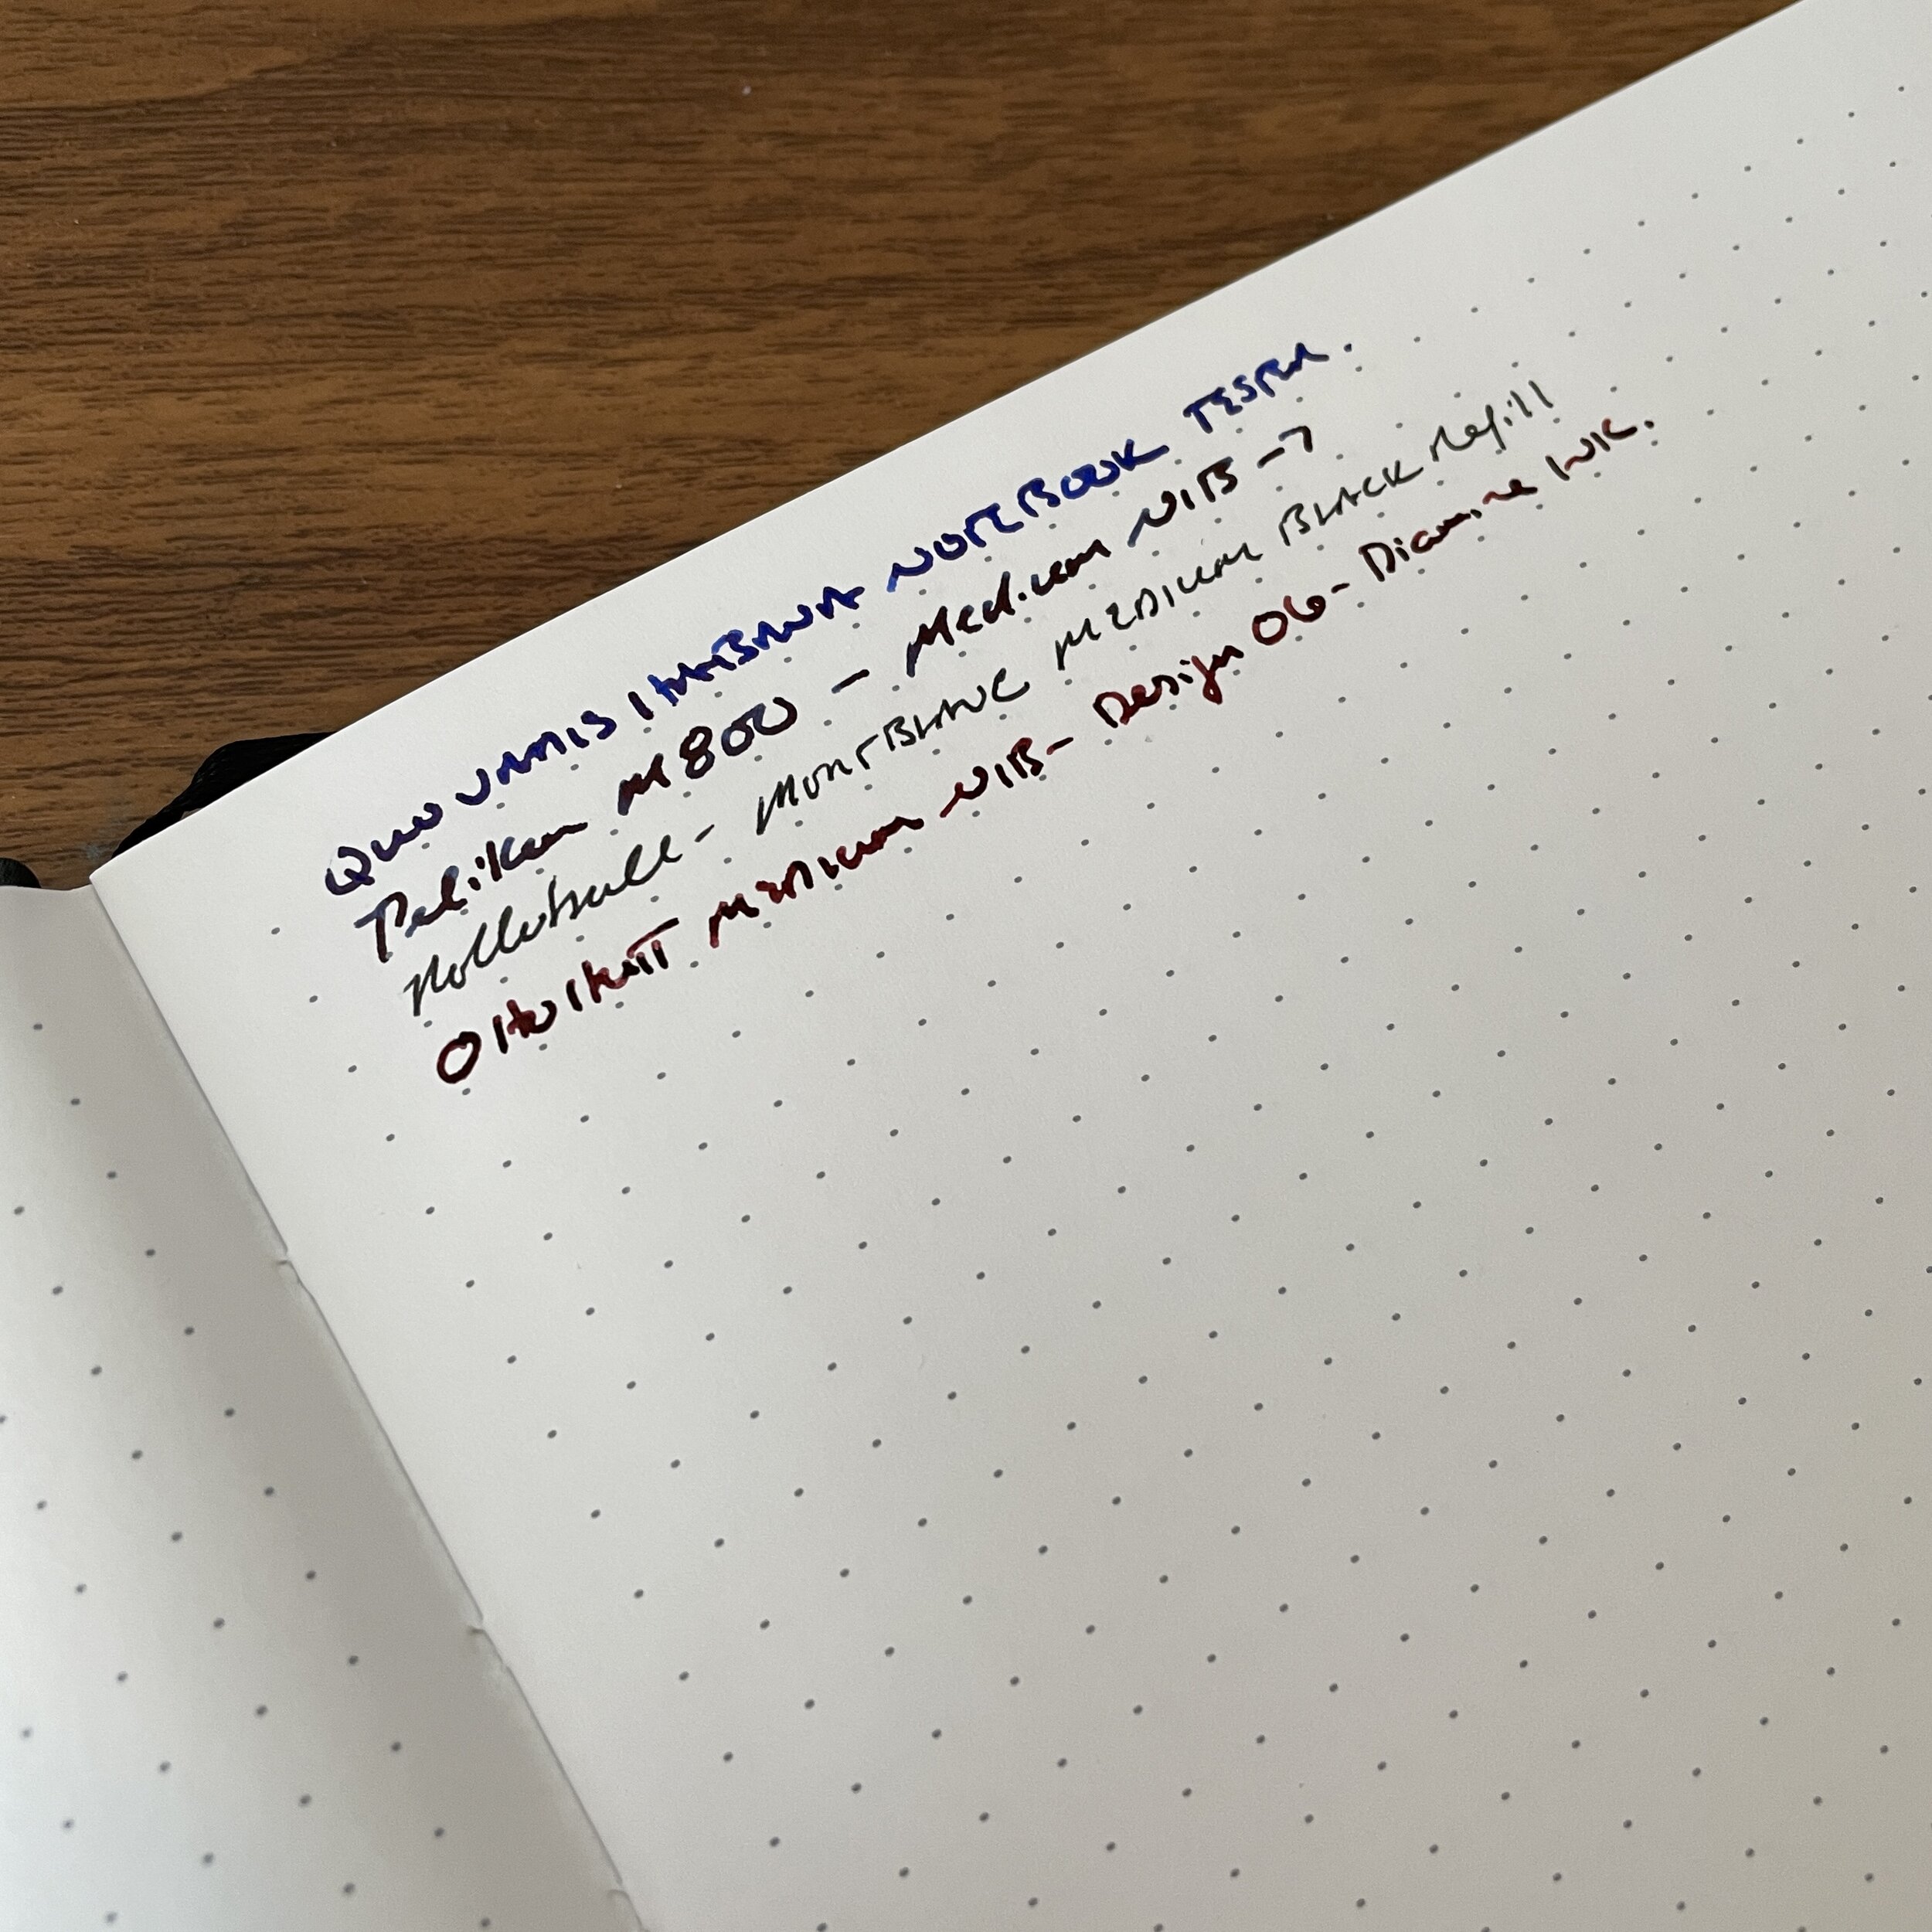 QUO VADIS HABANA NOTEBOOK TESTER.
Pelikan M800 - Medium NIB - ?
Rollerball - MONTBLANC MEDIUM BLACK Refill
MEDIUM NIB - Design 06 - Diamine INK.